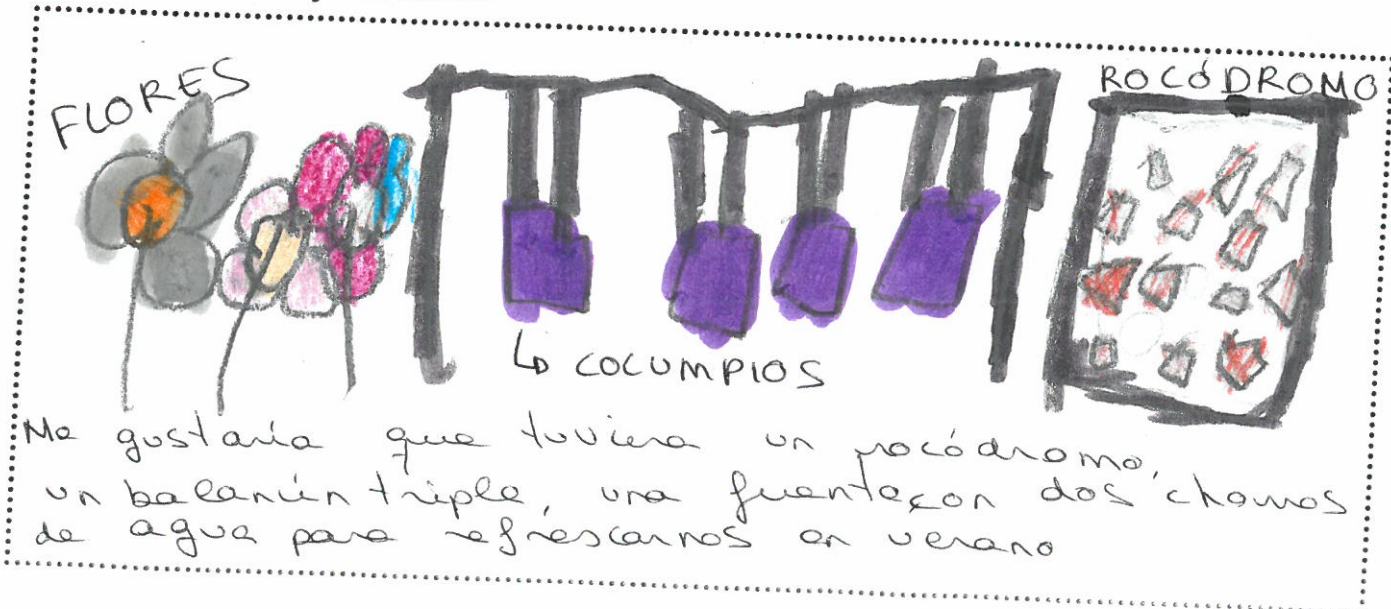 FLORES
ROCÓDROMO
↳ COCUMPIOS
Me gustaría que tuviera un rocódromo,
un balancín triple, una fuente con dos chorros
de agua para refrescarnos en verano